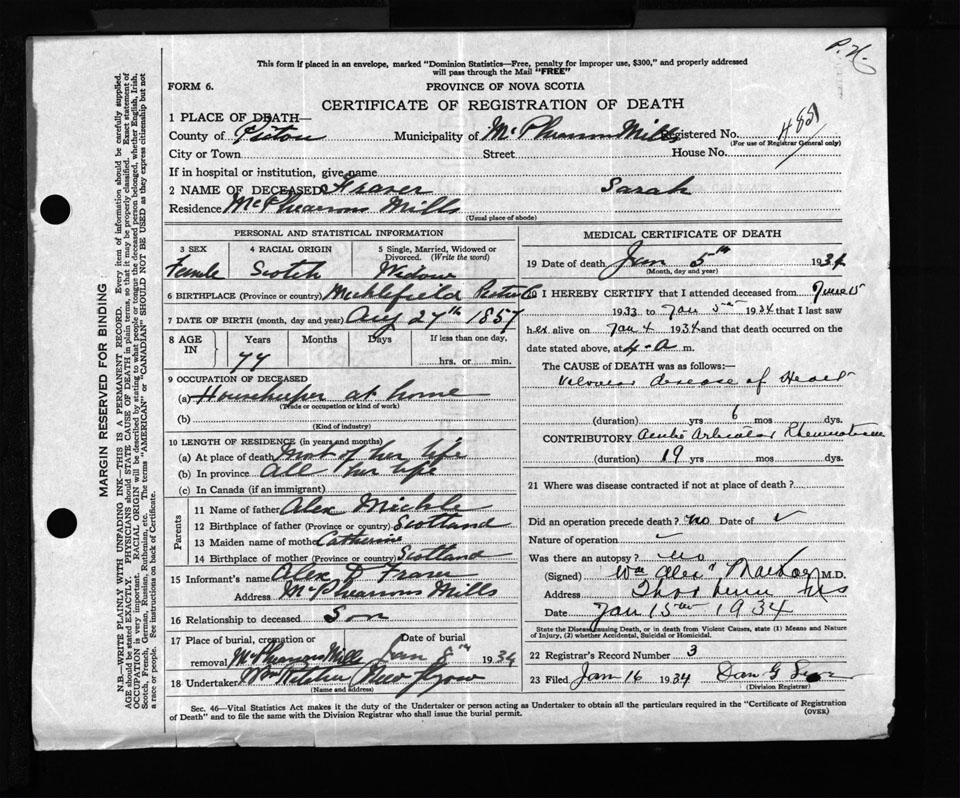 P.H.
This form if placed in an envelope, marked "Dominion Statistics—Free, penalty for improper use, $300," and properly addressed
will pass through the Mail "FREE"
FORM 6.
PROVINCE OF NOVA SCOTIA
CERTIFICATE OF REGISTRATION OF DEATH
1 PLACE OF DEATH—
County of Pictou Municipality of McPhearsons Mills Registered No. 485
(For use of Registrar General only)
City or Town Street House No.
If in hospital or institution, give name
2 NAME OF DECEASED Fraser Sarah
Residence McPhearsons Mills
(Usual place of abode)
PERSONAL AND STATISTICAL INFORMATION
3 SEX 4 RACIAL ORIGIN 5 Single, Married, Widowed or Divorced. (Write the word)
Female Scotch Widow
6 BIRTHPLACE (Province or country) Micklefield Pictou Co
7 DATE OF BIRTH (month, day and year) Aug 27th 1857
8 AGE IN Years Months Days If less than one day,
77 hrs. or min.
9 OCCUPATION OF DECEASED
(a) Housekeeper at home
(Trade or occupation or kind of work)
(b)
(Kind of industry)
10 LENGTH OF RESIDENCE (in years and months)
(a) At place of death Most of her life
(b) In province All her life
(c) In Canada (if an immigrant)
Parents
11 Name of father Alex Mickle
12 Birthplace of father (Province or country) Scotland
13 Maiden name of mother Catherine
14 Birthplace of mother (Province or country) Scotland
15 Informant's name Alex D Fraser
Address McPhearsons Mills
16 Relationship to deceased Son
17 Place of burial, cremation or Date of burial
removal McPhearsons Mills Jan 8th 1934
18 Undertaker New Glasgow
(Name and address)
MEDICAL CERTIFICATE OF DEATH
19 Date of death Jan 5th 1934
(Month, day and year)
20 I HEREBY CERTIFY that I attended deceased from June 15
1933 to Jan 5th 1934 that I last saw
her alive on Jan 4 1934 and that death occurred on the
date stated above, at 4-A m.
The CAUSE of DEATH was as follows:—
Valvular disease of Heart
(duration) yrs 6 mos dys.
CONTRIBUTORY Acute Articular Rheumatism
(duration) 19 yrs mos dys.
21 Where was disease contracted if not at place of death?
Did an operation precede death? no Date of ✓
Nature of operation ✓
Was there an autopsy? no
(Signed) Wm Alex MacKay M.D.
Address Thorburn NS
Date Jan 15th 1934
State the Disease causing Death, or in death from Violent Causes, state (1) Means and Nature
of Injury, (2) whether Accidental, Suicidal or Homicidal.
22 Registrar's Record Number 3
23 Filed Jan 16 1934 Dan G
(Division Registrar)
Sec. 46—Vital Statistics Act makes it the duty of the Undertaker or person acting as Undertaker to obtain all the particulars required in the "Certificate of Registration
of Death" and to file the same with the Division Registrar who shall issue the burial permit.
(OVER)
MARGIN RESERVED FOR BINDING
N.B.—WRITE PLAINLY WITH UNFADING INK—THIS IS A PERMANENT RECORD. Every item of information should be carefully supplied.
AGE should be stated EXACTLY. PHYSICIANS should STATE CAUSE OF DEATH in plain terms, so that it may be properly classified. Exact statement of
OCCUPATION is very important. RACIAL ORIGIN will be described by stating to what people or tongue the deceased person belonged, whether English, Irish,
Scotch, French, German, Russian, Ruthenian, etc. The terms "AMERICAN" or "CANADIAN" SHOULD NOT BE USED as they express citizenship but not
a race or people. See instructions on back of Certificate.